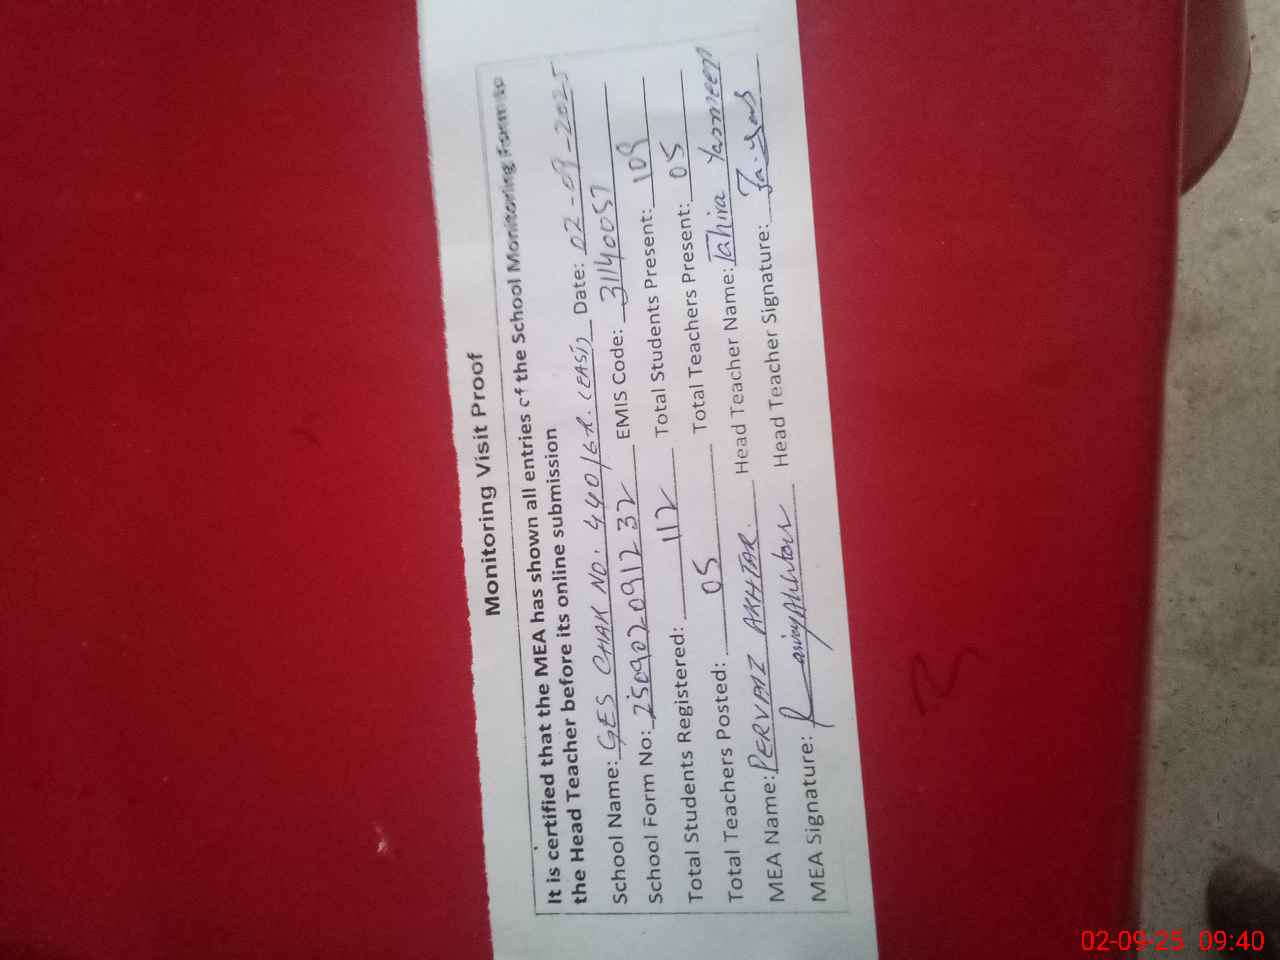 Monitoring Visit Proof
It is certified that the MEA has shown all entries of the School Monitoring Form to
the Head Teacher before its online submission
School Name: GES CHAK NO. 440/GR. (EAST) Date: 02-09-2025
School Form No: 250902091232 EMIS Code: 31140057
Total Students Registered: 112 Total Students Present: 109
Total Teachers Posted: 05 Total Teachers Present: 05
MEA Name: PERVAIZ AKHTAR. Head Teacher Name: Tahira Yasmeen
MEA Signature: Head Teacher Signature:
02-09-25 09:40